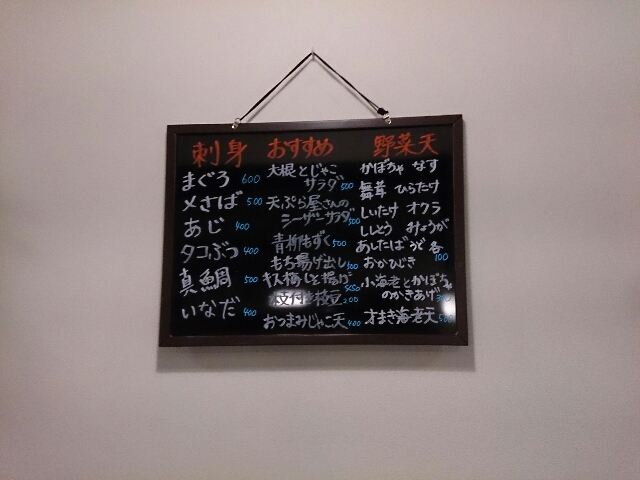 刺身
まぐろ 600
〆さば 500
あじ 400
タコぶつ 400
真鯛 500
いなだ 400
おすすめ
大根とじゃこ
サラダ 500
天ぷら屋さんの
シーザーサラダ 500
青柳もずく 500
もち揚げ出し 300
キス梅しそ揚げ 450
枝付き枝豆 200
おつまみじゃこ天 400
野菜天
かぼちゃ なす
舞茸 ひらたけ
しいたけ オクラ
ししとう みょうが
あしたば うど 各
おかひじき 100
小海老とかぼちゃ
のかきあげ 300
才まき海老天 500